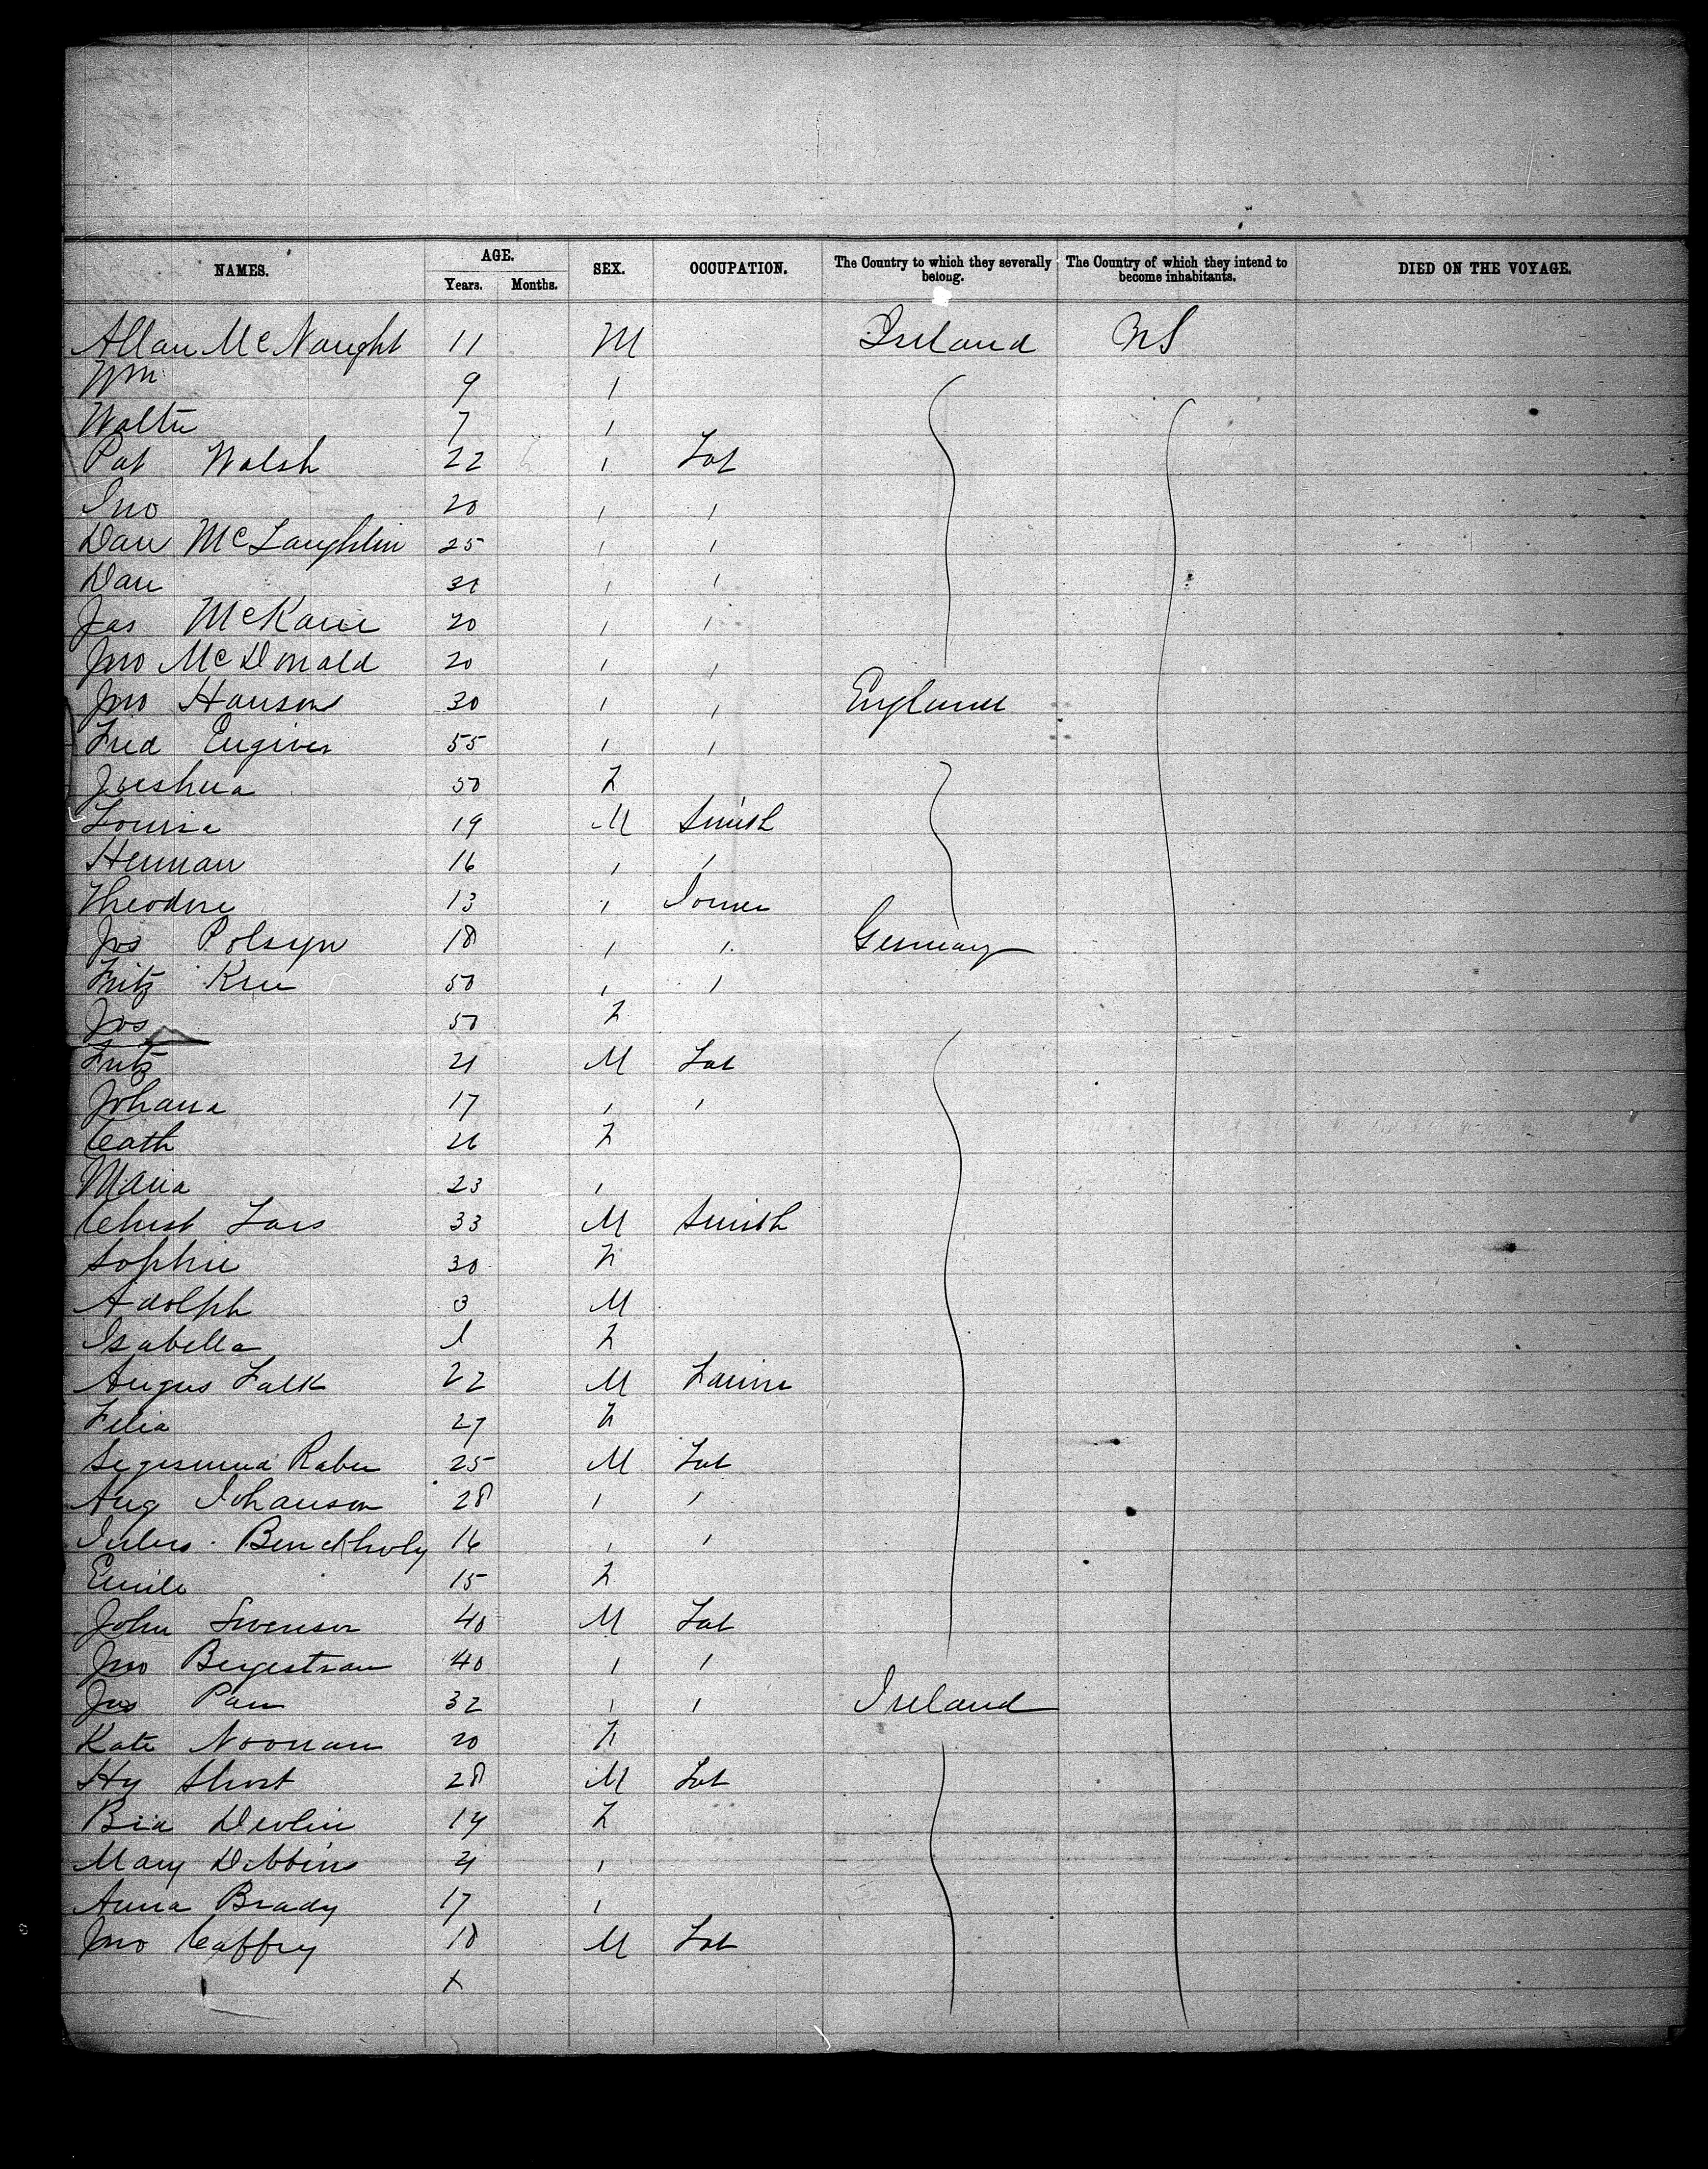 NAMES. AGE. Years. Months. SEX. OCCUPATION. The Country to which they severally belong. The Country of which they intend to become inhabitants. DIED ON THE VOYAGE.
Allan McNaught 11 M Ireland US
Wm 9 "
Walter 7 "
Pat Walsh 22 " Lab
Jno 20 " "
Dan McLaughlin 25 " "
Dan 30 " "
Jas McKane 20 " "
Jno McDonald 20 " "
Jno Hanson 30 " " England
Fred 55 " "
50 F
Louisa 19 M Smith
Herman 16 " "
Theodore 13 " Joiner
Jos Polsyn 18 " " Germany
Fritz 50 " "
Jos 50 F
Fritz 21 M Lab
Johana 17 " "
Cath 26 F
Maria 23 "
Christ Lars 33 M Smith
Sophie 30 F
Adolph 3 M
Isabella 1 F
Angus Falk 22 M Farmer
Filia 27 F
Segesmund Raber 25 M Lab
Aug Johanson 28 " "
Julius 16 " "
Emile 15 F
John Swenson 40 M Lab
Jno Bergestram 40 " "
Jas 32 " " Ireland
Kate Noonan 20 F
Hy Short 28 M Lab
Devlin 19 F
Mary Dobbins 21 "
Anna Brady 17 "
Jno Caffry 18 M Lab
x